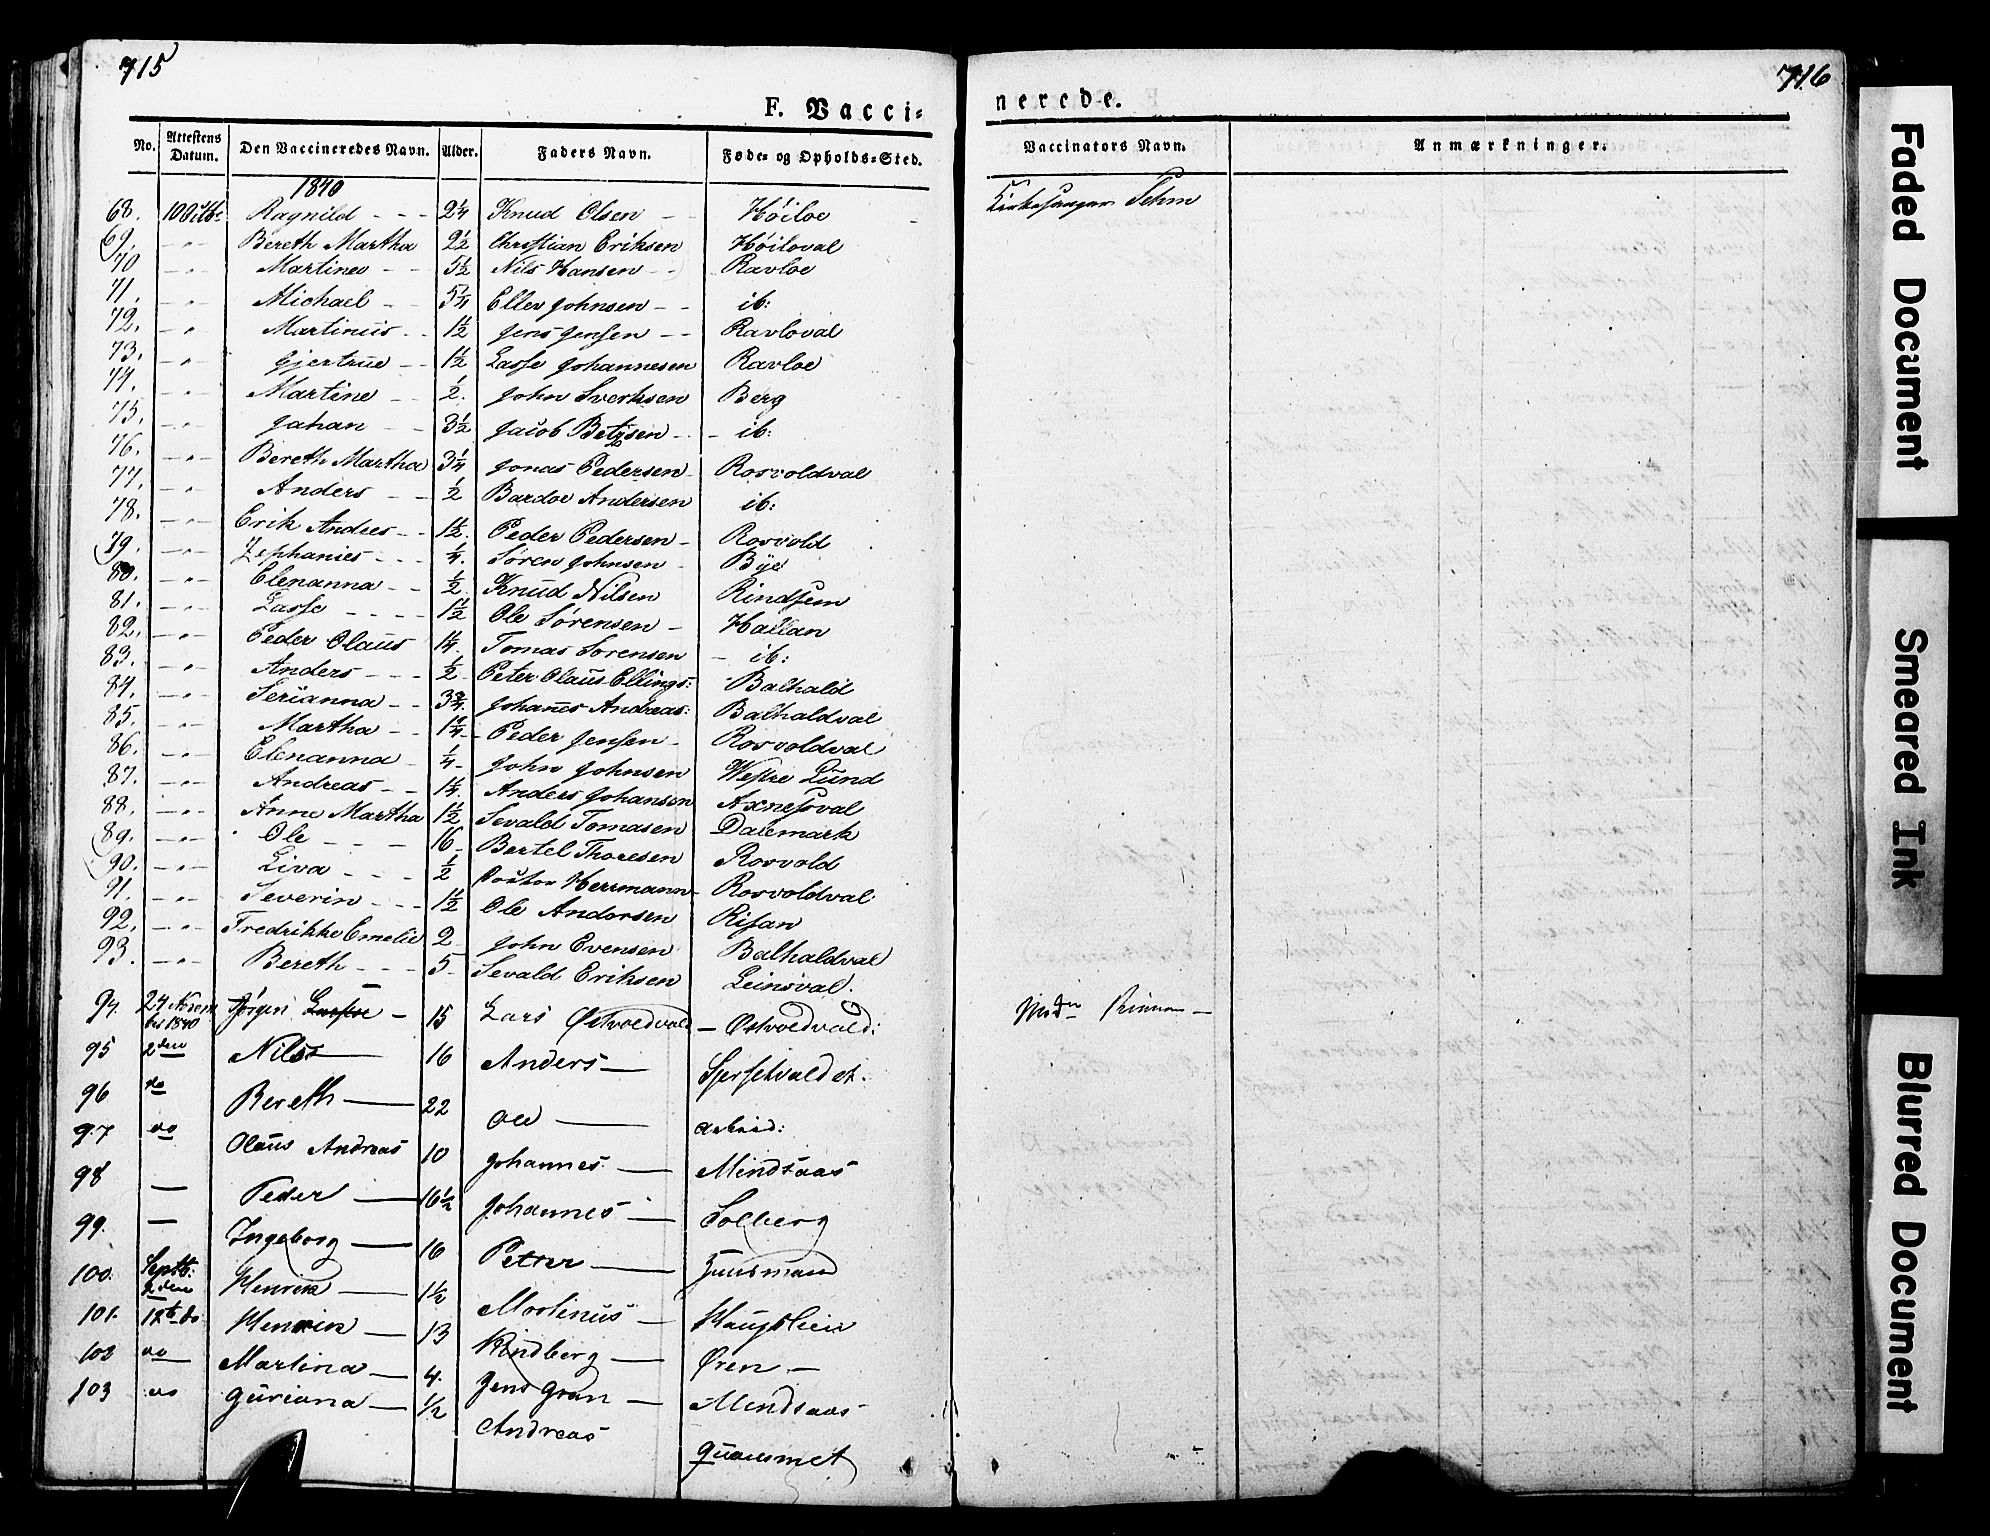 715
716
F. Vacci=
nerede.
No. Attestens Datum. Den Vaccineredes Navn. Alder. Faders Navn. Føde- og Opholds-Sted. Vaccinators Navn. Anmærkninger.
1840
68. 10 Ragnild - - - 2¼ Knud Olsen - Høiloe Kirkesanger Sehm
69. -"- Bereth Martha 2½ Christian Eriksen Høiloval
70 -"- Martines - - 5½ Nils Hansen - - Ravloe
71. -"- Michael - - 5¼ Eller Johnsen - - ib:
72. -"- Martinus - - 1½ Jens Jensen - - Ravloval
73. -"- Gjertrue - - 1½ Lasse Johannesen Ravloe
74. -"- Martine - - ½. John Sverksen Berg
75. -"- Johan - - 3½ Jacob Betzsen - - ib:
76. -"- Bereth Martha 3¼ Jonas Pedersen Rosvoldval
77. -"- Anders - - ½ Bardoe Andersen ib:
78. -"- Erik Andres - - 1½. Peder Pedersen - Rosvold
79. -"- Zephanies - - - ¼. Søren Johnsen - Bye
80. -"- Elenanna - - ½ Knud Nilsen Rindsem
81. -"- Lasse - - - - 1½ Ole Sørensen - Hallan
82. -"- Peder Olaus 1¼. Tomas Sorensen - ib:
83. -"- Anders - - - ½ Peter Olaus Ellings: Balhald
84. -"- Serianna - - 3¾. Johanes Andreas: Balhaldval
85. -"- Martha - - 1¼ - Peder Jensen - Rosvoldval
86. -"- Elenanna - ¼ - John Johnsen Westre Lund
87. -"- Andreas - - 1¼. Anders Johansen Axnessval
88. -"- Anne Martha 1½ Sevald Tomasen Dalemark
89. -"- Ole - - - 16 - Bertel Thoresen Rosvold
90. -"- Liva - - - ½ Herrmann - Rosvoldval
91. -"- Severin - - - 1½ Ole Andorsen Risan
92. -"- Fredrikke Emelie 2 John Evensen Balhaldval
93. -"- Bereth - - - 5 - Sevald Eriksen Leinsval.
94. 24 Novem bis 1840 Jørgen - 15 Lars Østvoldvald - Østvoldvald: Rinnan -
95 2den Nils 16 Anders -
96 do Bereth - 22 Ole -
97 do Olaus Andreas 10 Johannes - Mindsaas
98 - Peder - 16½ Johannes - Solberg
99. - Ingeborg - 16 Petter - Huusmand
100. Septb: 2den Henrik - 1½ Martinus - Haugslien
101. 12t do Henrik - 13 Rindberg - Øren -
102 do Martina - 4. Jens Gran - Mindsaas
103 do Guriana - ½ Andreas Quausmet
Faded Document
Smeared Ink
Blurred Document